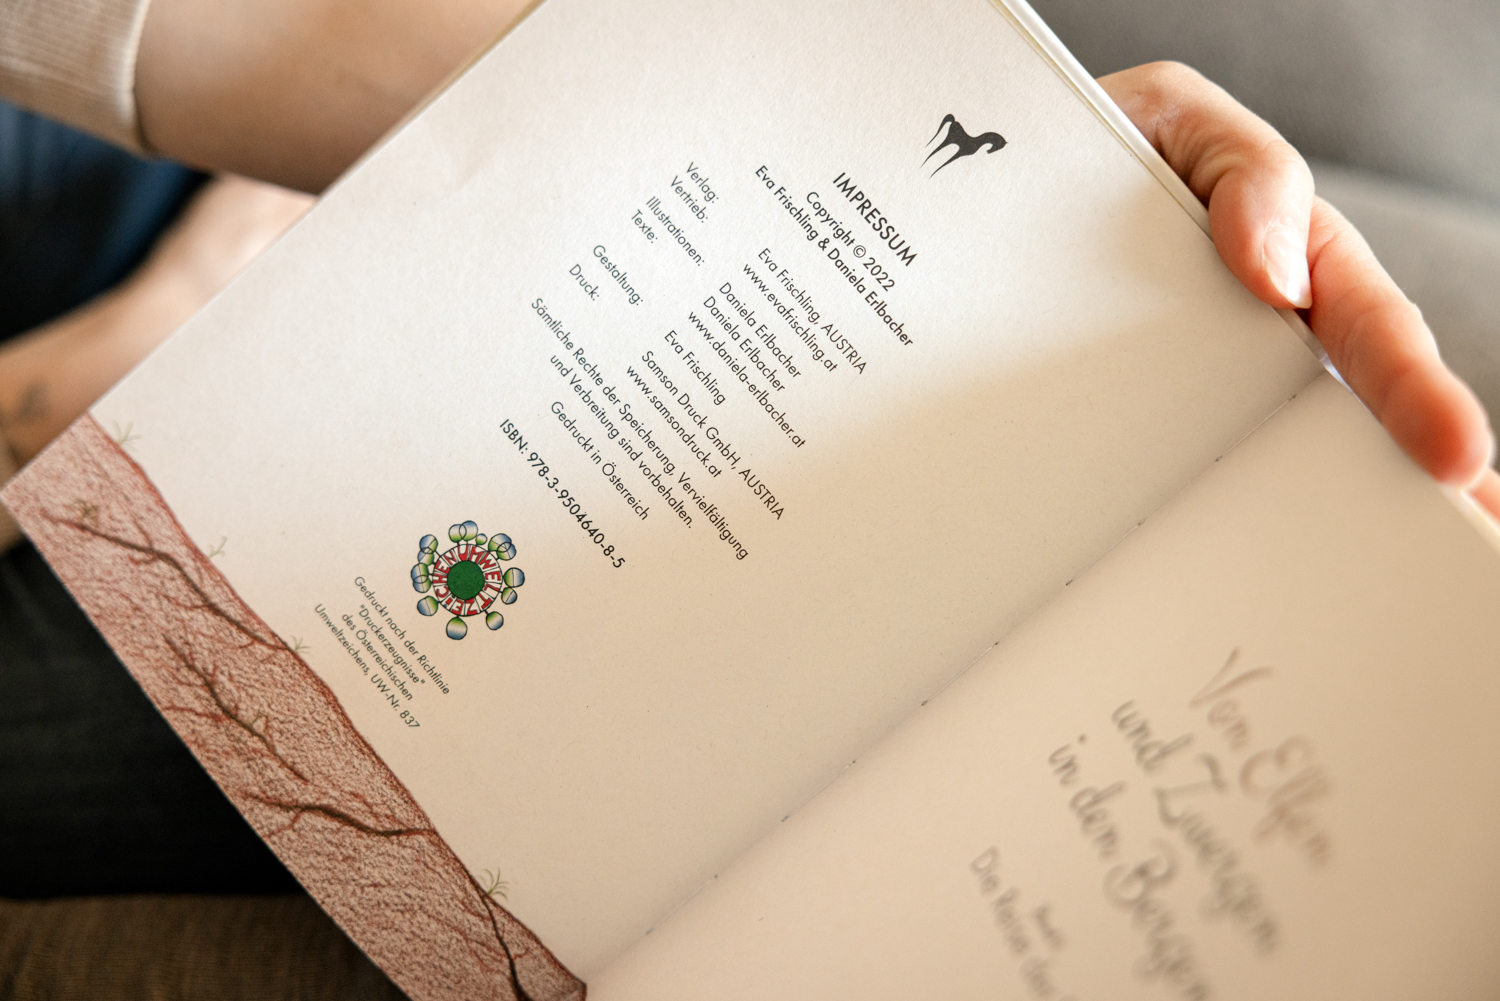 IMPRESSUM
Copyright © 2022
Eva Frischling & Daniela Erlbacher
Verlag: Eva Frischling, AUSTRIA
Vertrieb: www.evafrischling.at
Illustrationen: Daniela Erlbacher
Texte: Daniela Erlbacher
www.daniela-erlbacher.at
Gestaltung: Eva Frischling
Druck: Samson Druck GmbH, AUSTRIA
www.samsondruck.at
Sämtliche Rechte der Speicherung, Vervielfältigung
und Verbreitung sind vorbehalten.
Gedruckt in Österreich
ISBN: 978-3-9504640-8-5
UMWELTZEICHEN
Gedruckt nach der Richtlinie
"Druckerzeugnisse"
des Österreichischen
Umweltzeichens, UW-Nr. 837
Von Elfen
und Zwergen
in den Bergen
Die Reise der